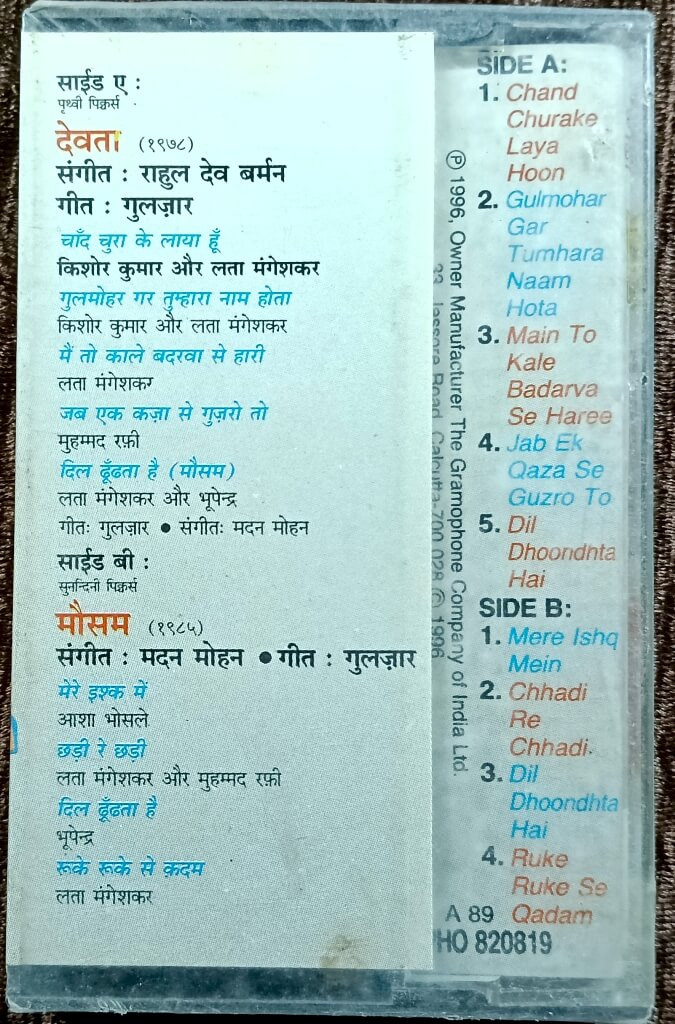 साईड ए :
पृथ्वी पिक्चर्स
देवता (१९७८)
संगीत : राहुल देव बर्मन
गीत : गुलज़ार
चाँद चुरा के लाया हूँ
किशोर कुमार और लता मंगेशकर
गुलमोहर गर तुम्हारा नाम होता
किशोर कुमार और लता मंगेशकर
मैं तो काले बदरवा से हारी
लता मंगेशकर
जब एक कज़ा से गुज़रो तो
मुहम्मद रफ़ी
दिल ढूँढता है (मौसम)
लता मंगेशकर और भूपेन्द्र
गीतः गुलज़ार ● संगीतः मदन मोहन
साईड बी :
सुनन्दिनी पिक्चर्स
मौसम (१९८५)
संगीत : मदन मोहन ● गीत : गुलज़ार
मेरे इश्क में
आशा भोसले
छड़ी रे छड़ी
लता मंगेशकर और मुहम्मद रफ़ी
दिल ढूँढता है
भूपेन्द्र
रूके रूके से क़दम
लता मंगेशकर
Ⓟ 1996, Owner Manufacturer The Gramophone Company of India Ltd.
33, Jessore Road, Calcutta-700 028 © 1996
SIDE A:
1. Chand
Churake
Laya
Hoon
2. Gulmohar
Gar
Tumhara
Naam
Hota
3. Main To
Kale
Badarva
Se Haree
4. Jab Ek
Qaza Se
Guzro To
5. Dil
Dhoondhta
Hai
SIDE B:
1. Mere Ishq
Mein
2. Chhadi
Re
Chhadi
3. Dil
Dhoondhta
Hai
4. Ruke
Ruke Se
A 89 Qadam
HO 820819